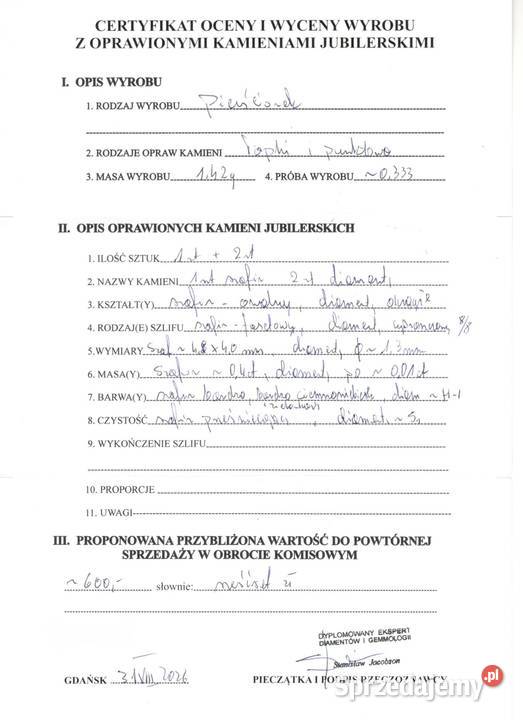 CERTYFIKAT OCENY I WYCENY WYROBU
Z OPRAWIONYMI KAMIENIAMI JUBILERSKIMI
I. OPIS WYROBU
1. RODZAJ WYROBU Pierścionek
2. RODZAJE OPRAW KAMIENI łapki i punktowa
3. MASA WYROBU 1.42g 4. PRÓBA WYROBU ~0.333
II. OPIS OPRAWIONYCH KAMIENI JUBILERSKICH
1. ILOŚĆ SZTUK 1 szt + 2 szt
2. NAZWY KAMIENI 1 szt szafir 2 szt diament
3. KSZTAŁT(Y) szafir - owalny, diament, okrągłe
4. RODZAJ(E) SZLIFU szafir - fasetowy, diament, uproszczony 8/8
5. WYMIARY szaf ~ 4,8 x 4,0 mm, diament, φ ~ 1,3 mm
6. MASA(Y) szafir ~ 0.4ct, diament, po ~ 0.01ct
7. BARWA(Y) szafir bardzo, bardzo ciemnoniebieski, diam ~ H-I
8. CZYSTOŚĆ szafir , diament ~ Si
9. WYKOŃCZENIE SZLIFU
10. PROPORCJE
11. UWAGI
III. PROPONOWANA PRZYBLIŻONA WARTOŚĆ DO POWTÓRNEJ
SPRZEDAŻY W OBROCIE KOMISOWYM
~ 600,- słownie: sześćset zł
DYPLOMOWANY EKSPERT
DIAMENTÓW I GEMMOLOGII
Stanisław Jacobson
GDAŃSK 31 VIII 2026 PIECZĄTKA I PODPIS RZECZOZNAWCY
Sprzedajemy.pl